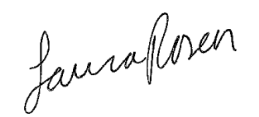 Laura Rosen